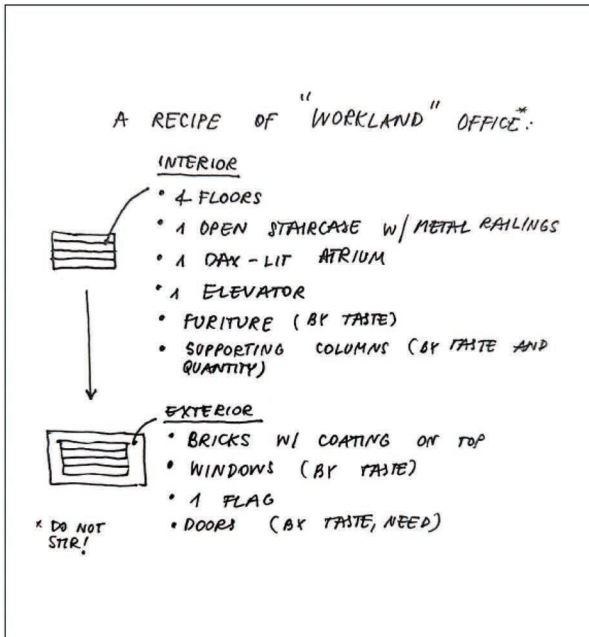 A RECIPE OF "WORKLAND" OFFICE*:
INTERIOR
• 4 FLOORS
• 1 OPEN STAIRCASE W/ METAL RAILINGS
• 1 DAY-LIT ATRIUM
• 1 ELEVATOR
• FURITURE (BY TASTE)
• SUPPORTING COLUMNS (BY TASTE AND
QUANTITY)
EXTERIOR
• BRICKS W/ COATING ON TOP
• WINDOWS (BY TASTE)
• 1 FLAG
• DOORS (BY TASTE, NEED)
* DO NOT
STIR!